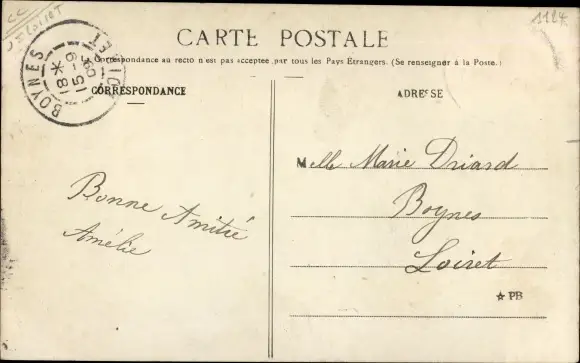 CARTE POSTALE
La Correspondance au recto n'est pas acceptée par tous les Pays Étrangers. (Se renseigner à la Poste.)
CORRESPONDANCE
ADRESSE
BOYNES
LOIRET
Melle Marie Driard
Boynes
Loiret
Bonne Amitié
Amélie
PB